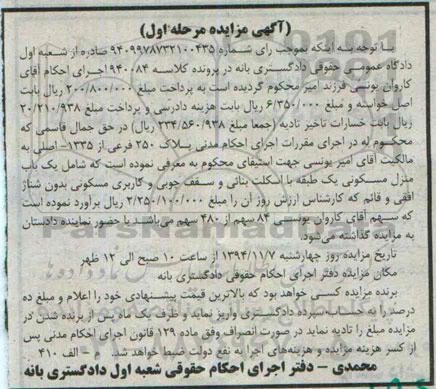 (آگهی مزایده مرحله اول)
با توجه به اینکه بموجب رای شماره ۹۴۰۹۹۷۸۷۳۲۱۰۰۴۳۵ صادره از شعبه اول
دادگاه عمومی حقوقی دادگستری بانه در پرونده کلاسه ۹۴۰۰۸۴ اجرای احکام آقای
کاروان یونسی فرزند امیر محکوم گردیده است به پرداخت مبلغ ۲۰۰/۸۰۰/۰۰۰ ریال بابت
اصل خواسته و مبلغ ۶/۳۵۰/۰۰۰ ریال بابت هزینه دادرسی و پرداخت مبلغ ۲۰/۲۱۰/۹۳۸
ریال بابت خسارات تاخیر تادیه (جمعا مبلغ ۲۳۴/۵۶۰/۹۳۸ ریال) در حق جمال قاسمی که
محکوم له در اجرای مقررات اجرای احکام مدنی پلاک ۲۵۰ فرعی از ۱۳۳۵- اصلی به
مالکیت آقای امیر یونسی جهت استیفای محکوم به معرفی نموده است که شامل یک باب
منزل مسکونی یک طبقه با اسکلت بنائی و سقف چوبی و کاربری مسکونی بدون شناژ
افقی و قائم که کارشناس ارزش روز آن را مبلغ ۲/۲۵۰/۱۰۰/۰۰۰ ریال برآورد نموده است
که سهم آقای کاروان یونسی ۸۴ سهم از ۴۸۰ سهم می‌باشد با حضور نماینده دادستان
به مزایده گذاشته می‌شود.
تاریخ مزایده روز چهارشنبه ۱۳۹۴/۱۱/۷ از ساعت ۱۰ صبح الی ۱۲ ظهر
مکان مزایده دفتر اجرای احکام حقوقی دادگستری بانه
برنده مزایده کسی خواهد بود که بالاترین قیمت پیشنهادی خود را اعلام و مبلغ ده
درصد را به حساب سپرده دادگستری واریز نماید و ظرف یک ماه پس از برنده شدن در
مزایده مبلغ را تادیه نماید در صورت انصراف وفق ماده ۱۲۹ قانون اجرای احکام مدنی پس
از کسر هزینه مزایده و هزینه‌های اجرا به نفع دولت ضبط خواهد شد. الف ۴۱۰
محمدی – دفتر اجرای احکام حقوقی شعبه اول دادگستری بانه
ParsNamadData